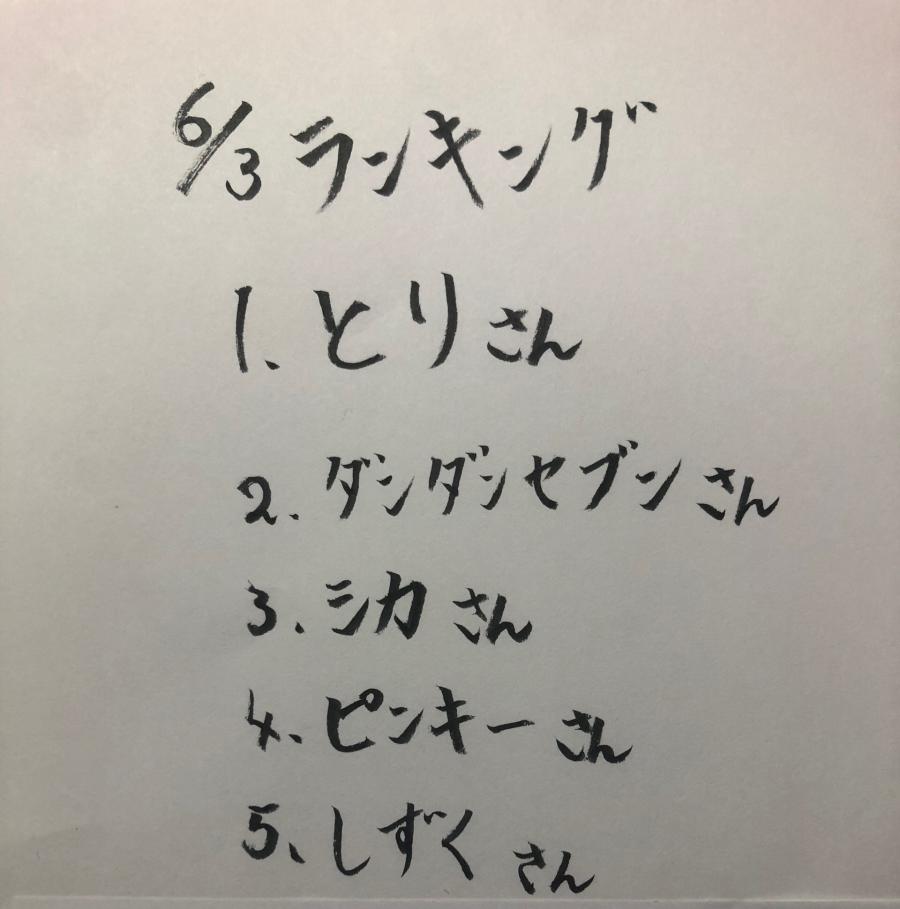 6/3 ランキング
1. とりさん
2. ダンダンセブンさん
3. シカさん
4. ピンキーさん
5. しずくさん